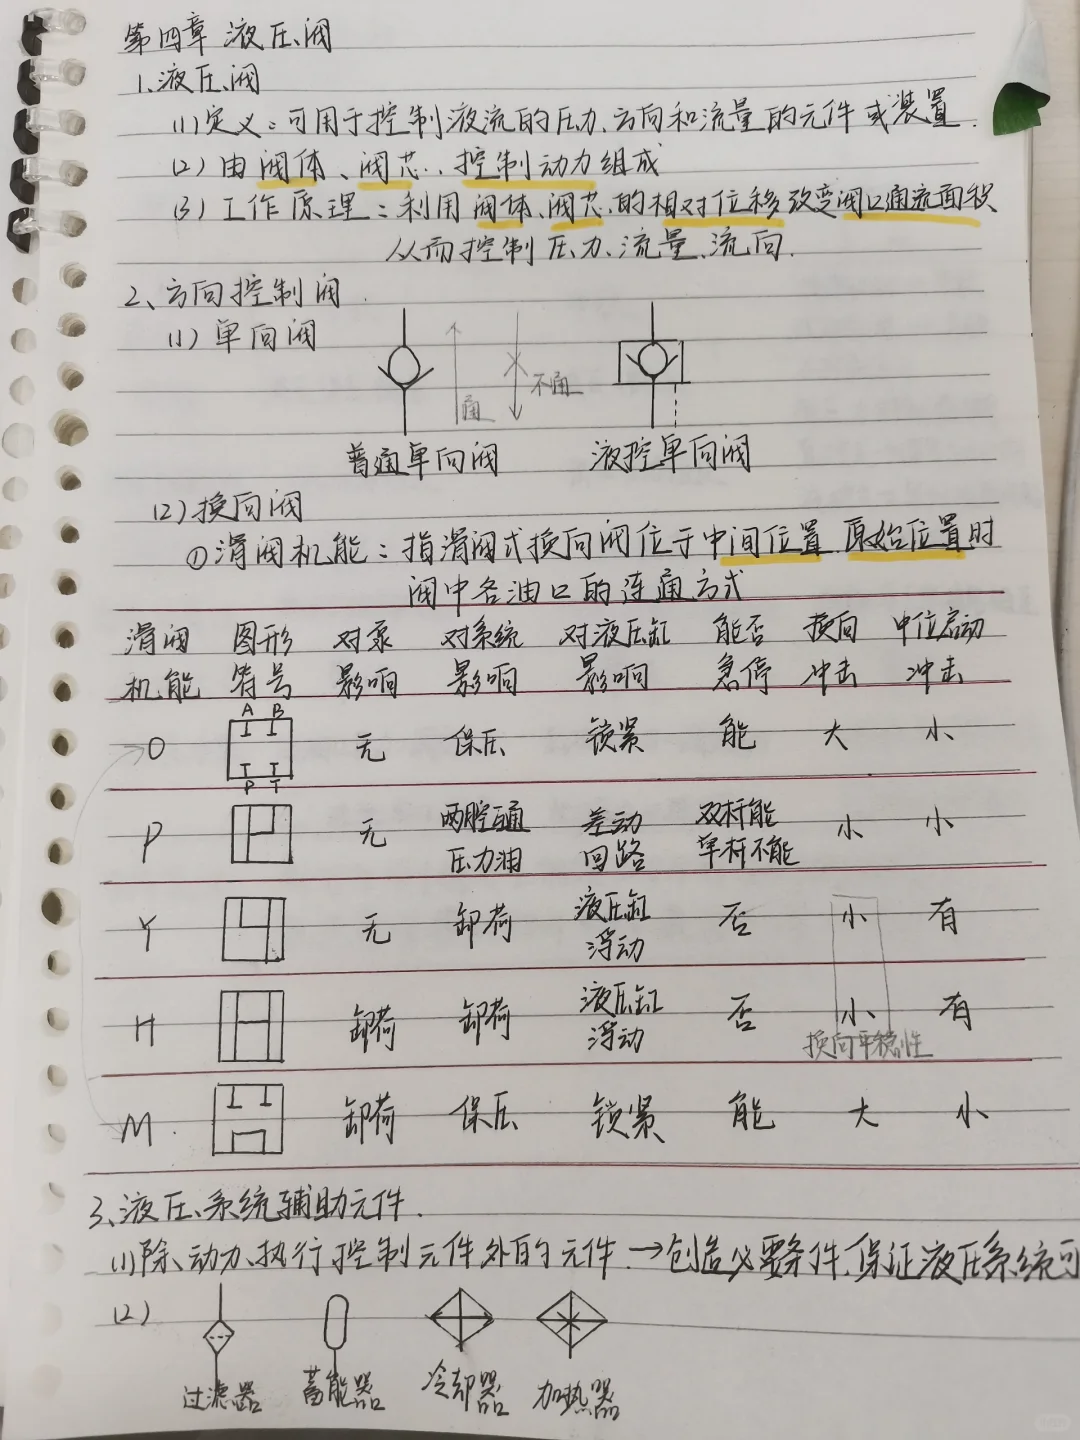 第四章 液压阀
1.液压阀
(1)定义：可用于控制液流的压力、方向和流量的元件或装置.
(2)由阀体、阀芯、控制动力组成
(3)工作原理：利用阀体、阀芯的相对位移改变阀口通流面积
从而控制压力、流量、流向.
2、方向控制阀
(1)单向阀
通
不通
普通单向阀 液控单向阀
(2)换向阀
①滑阀机能：指滑阀式换向阀位于中间位置.原始位置时
阀中各油口的连通方式
滑阀 图形 对泵 对系统 对液压缸 能否 换向 中位启动
机能 符号 影响 影响 影响 急停 冲击 冲击
A B
O 无 保压 锁紧 能 大 小
P T
P 无 两腔通 差动 双杆能 小 小
压力油 回路 单杆不能
Y 无 卸荷 液压缸 否 小 有
浮动
H 卸荷 卸荷 液压缸 否 小 有
浮动 换向平稳性
M 卸荷 保压 锁紧 能 大 小
3、液压系统辅助元件.
(1)除动力、执行控制元件外的元件.→创造必要条件.保证液压系统可
(2)
过滤器 蓄能器 冷却器 加热器